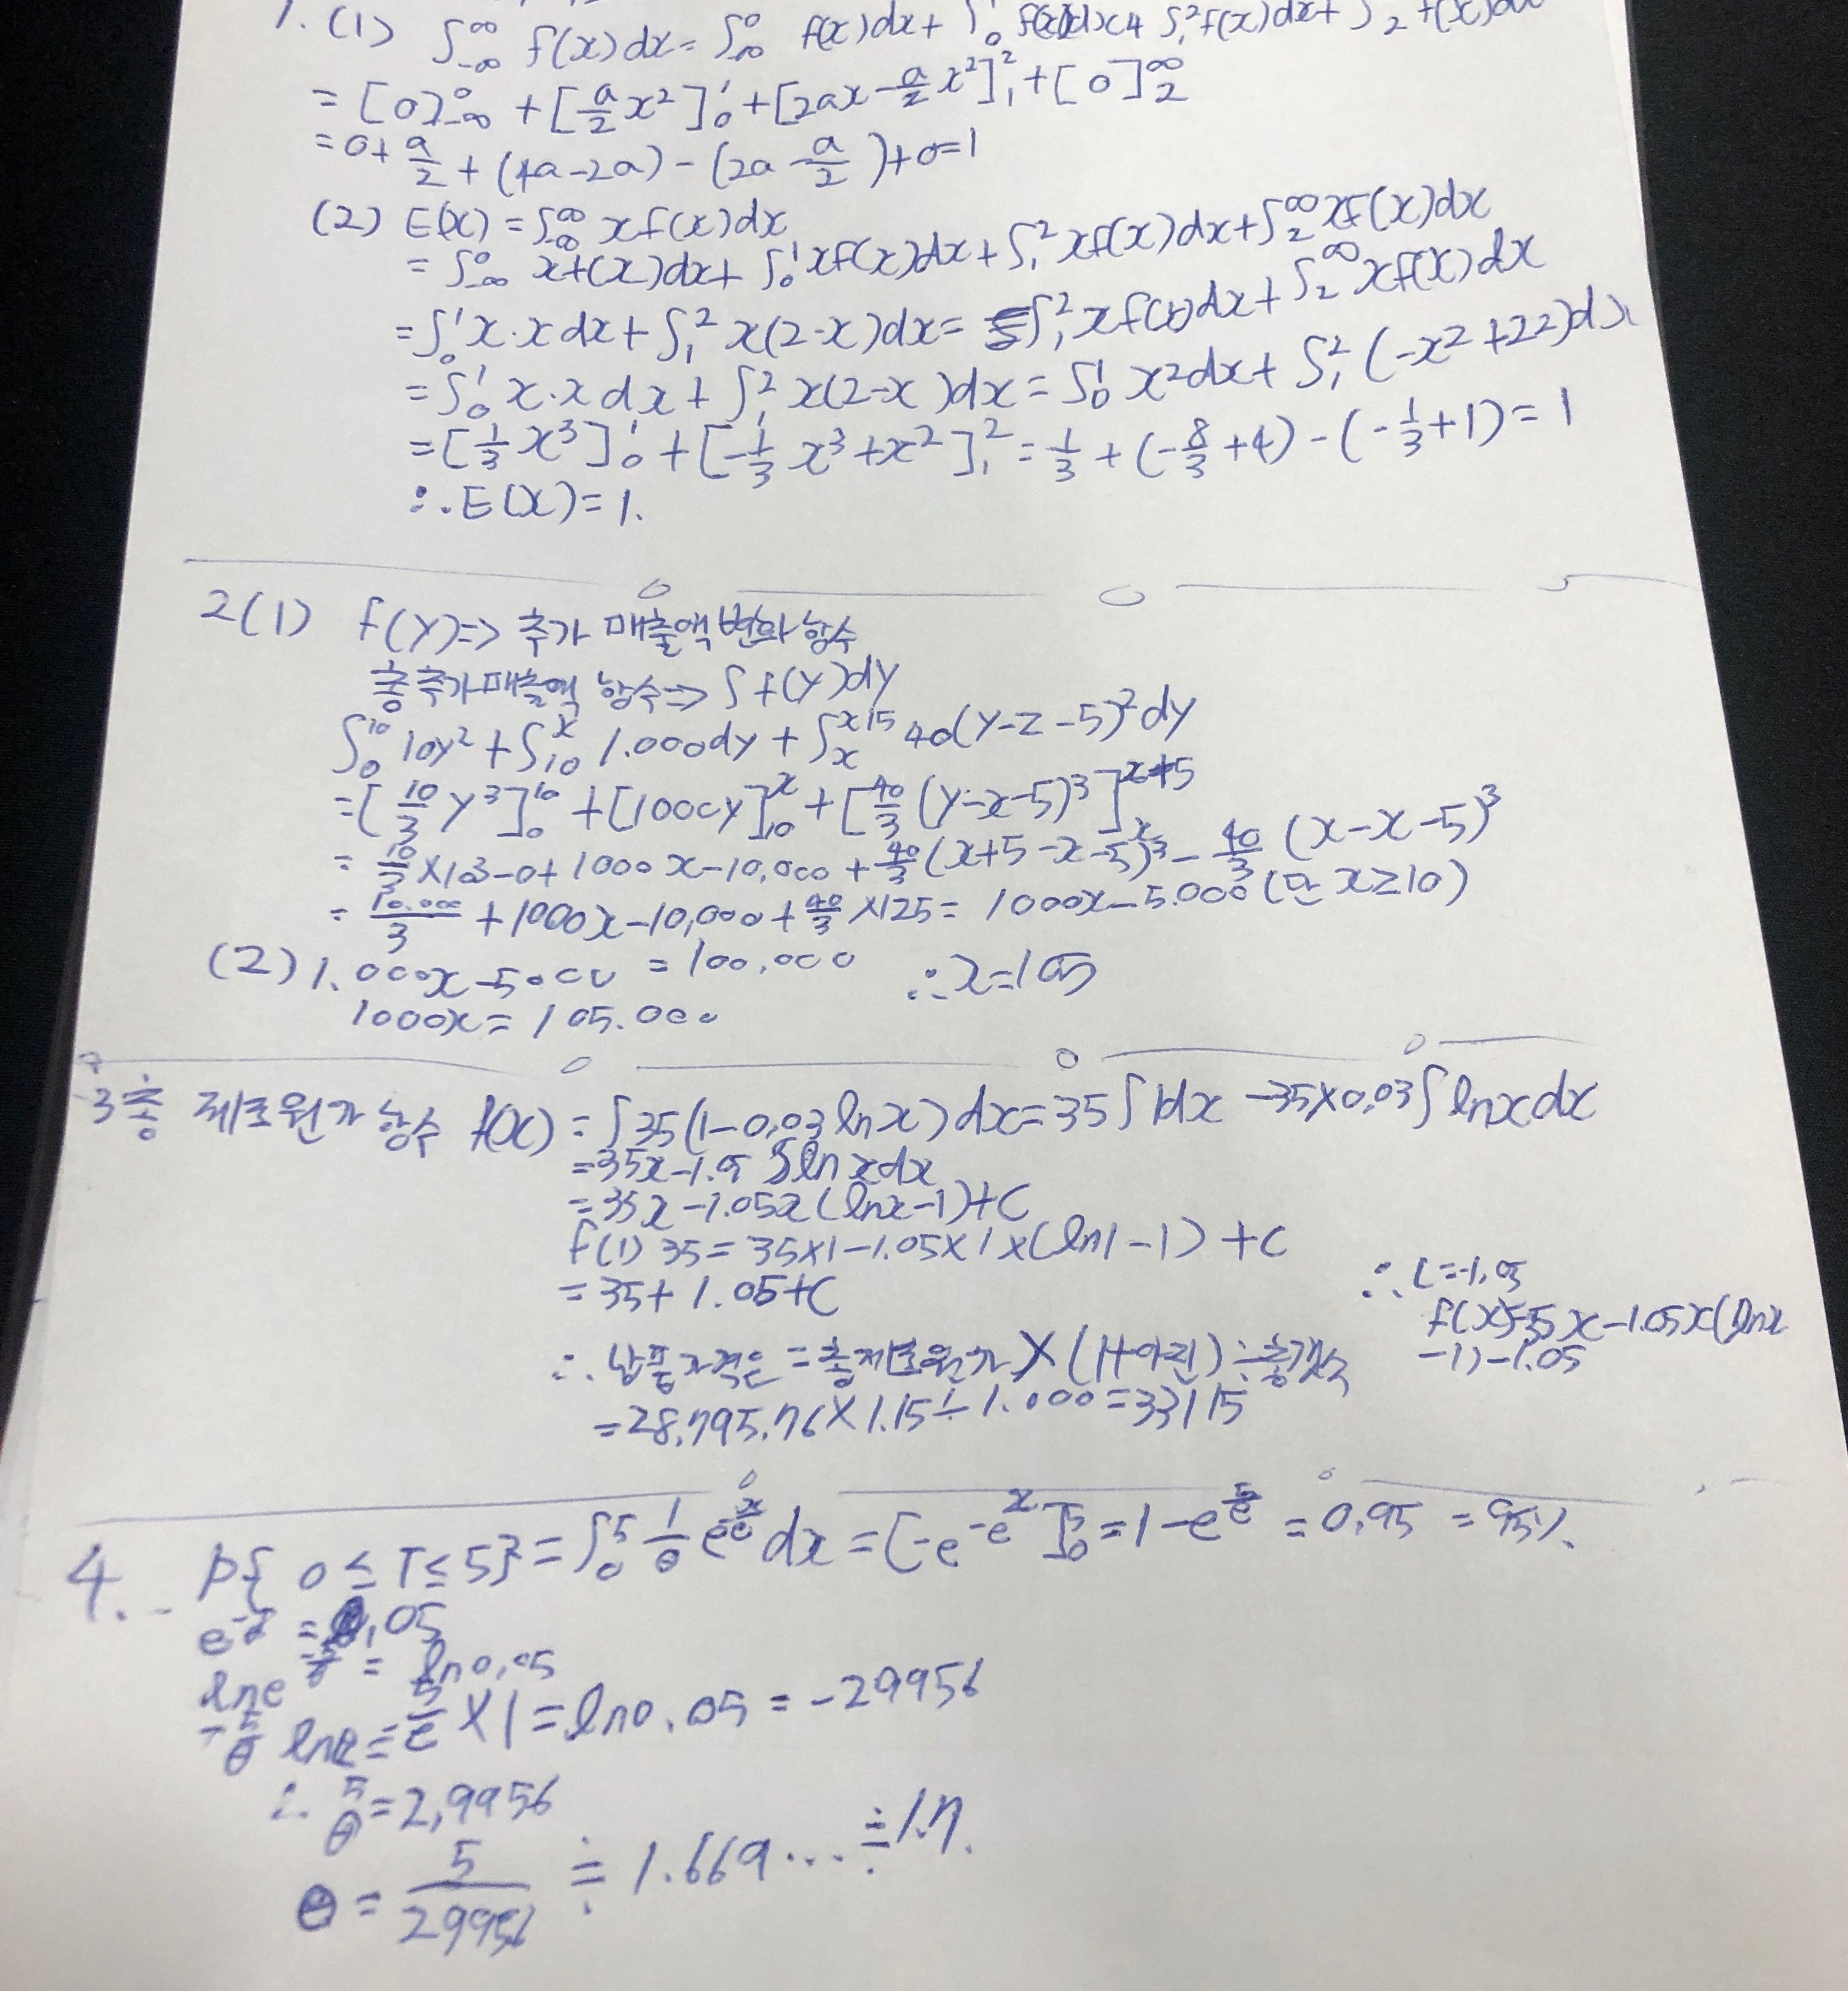 1. (1) ∫-∞^∞ f(x)dx = ∫-∞^0 f(x)dx + ∫0^1 f(x)dx + ∫1^2 f(x)dx + ∫2 f(x)dx
= [0]-∞^0 + [a/2 x²]0^1 + [2ax - a/2 x²]1^2 + [0]2^∞
= 0 + a/2 + (4a-2a) - (2a - a/2) + 0 = 1
(2) E(X) = ∫-∞^∞ xf(x)dx
= ∫-∞^0 xf(x)dx + ∫0^1 xf(x)dx + ∫1^2 xf(x)dx + ∫2^∞ xf(x)dx
= ∫0^1 x·x dx + ∫1^2 x(2-x)dx = ∫1^2 xf(x)dx + ∫2^∞ xf(x)dx
= ∫0^1 x·x dx + ∫1^2 x(2-x)dx = ∫0^1 x²dx + ∫1^2 (-x²+22)dx
= [1/3 x³]0^1 + [-1/3 x³+x²]1^2 = 1/3 + (-8/3+4) - (-1/3+1) = 1
∴ E(X) = 1.
2(1) f(Y) => 추가 매출액 변화 함수
총 추가매출액 함수 => ∫f(Y)dy
∫0^10 10y² + ∫10^x 1.000dy + ∫x^x15 40(y-z-5)²dy
= [10/3 y³]0^10 + [1000y]10^x + [40/3 (y-x-5)³]x^x+5
= 10/3 × 10³-0+1000x-10,000 + 40/3 (x+5-x-5)³ - 40/3 (x-x-5)³
= 10.000/3 + 1000x-10,000 + 40/3 ×125 = 1000x-5.000 (단 x≥10)
(2) 1.000x-5000 = 100,000 ∴x=105
1000x = 105.000
3 총 제조원가 함수 f(x) = ∫35(1-0.03 lnx)dx = 35∫1dx - 35×0.03∫lnxdx
= 35x-1.05∫lnxdx
= 35x-1.05x(lnx-1)+C
f(1) 35 = 35×1-1.05×1×(ln1-1)+C
= 35+1.05+C ∴ C=-1.05
f(x)=35x-1.05x(lnx
-1)-1.05
∴ 납품가격은 = 총제조원가 × (1+마진) ÷ 총갯수
= 28,795.76×1.15÷1.000 = 33115
4. P{0≤T≤5} = ∫0^5 1/θ e^-x/θ dx = [-e^-e^x]0^5 = 1-e^5/e = 0.95 = 95%.
e^-5/θ = 0.05
lne^-5/θ = ln0.05
-5/θ lne = 5/e ×1 = ln0.05 = -29956
∴ 5/θ = 2,9956
θ = 5/29956 ≒ 1.669... ≒ 1.7.